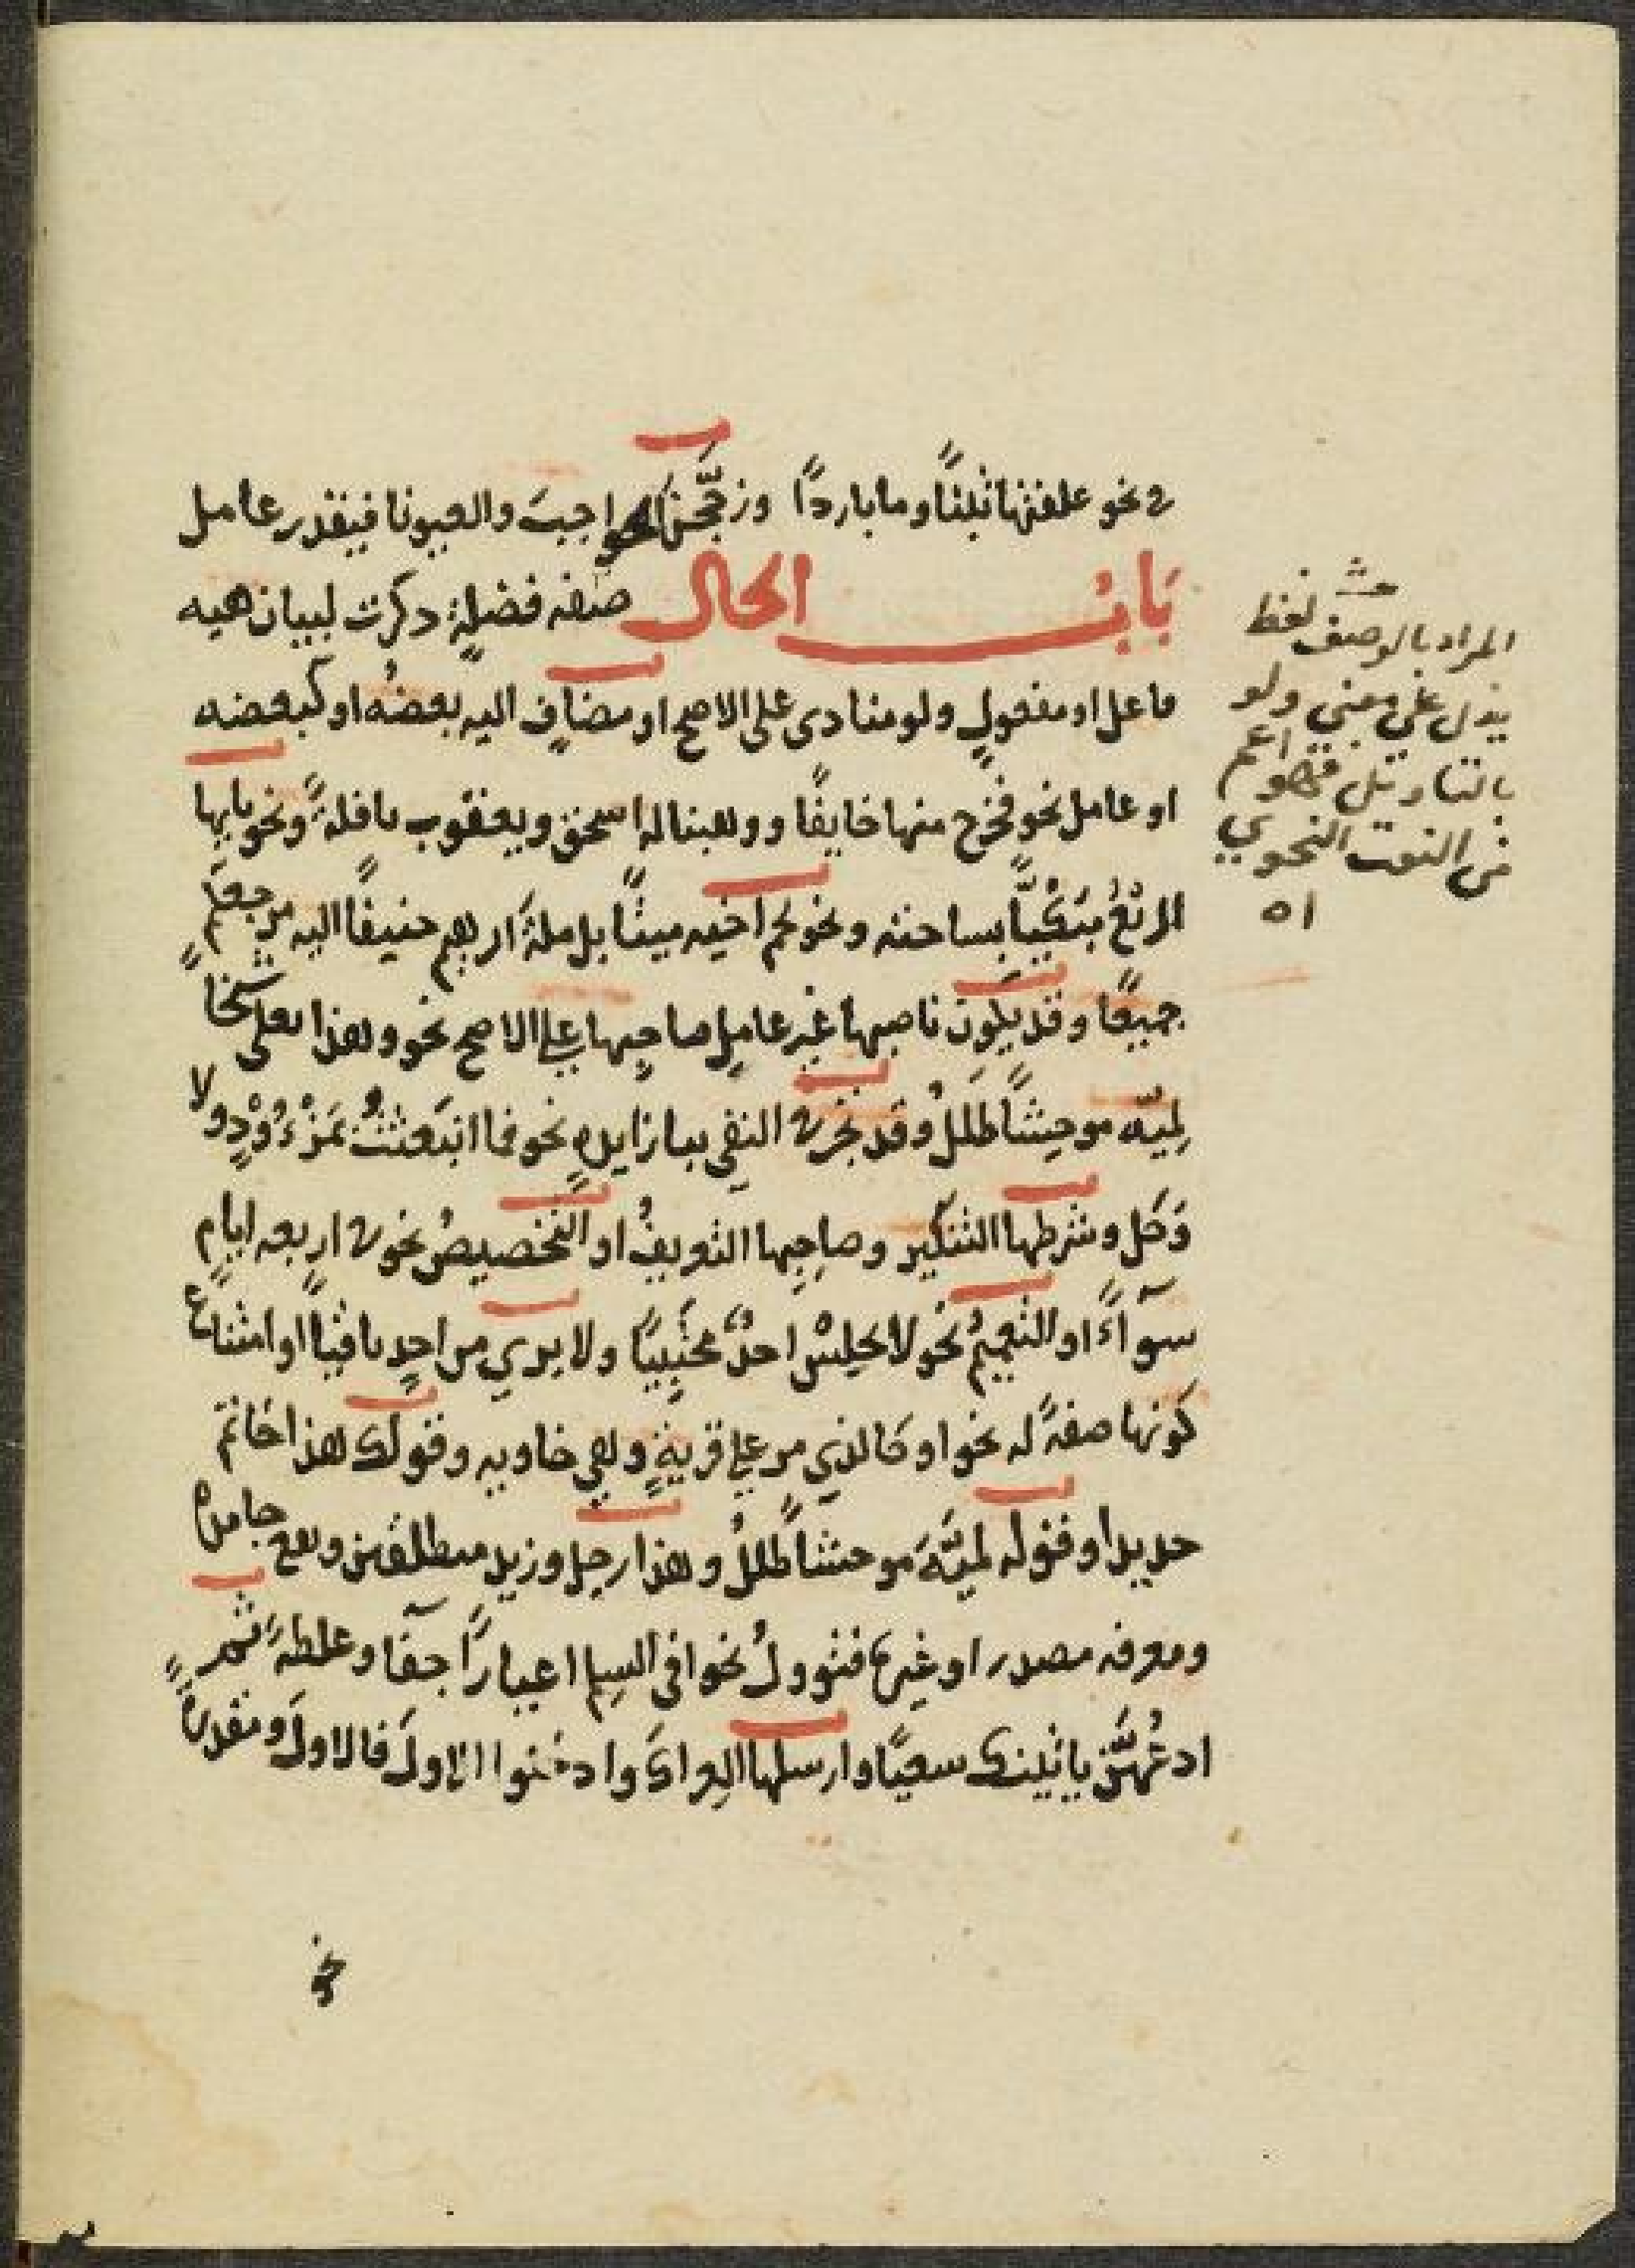 في نحو علفتها تبنًا وما باردًا وزججّن الحواجبَ والعيونا فيقدر عامل
بَابُ الحال صفه فضلةٍ ذكرت لبيان هيه
فاعل او مفعولٍ ولو منادى على الاصح او مضافٍ اليه بعضُه او كبعضه
او عامل نحو فخرج منها خايفًا ووهبنا له اسحق ويعقوب نافلةً ونحو يايها
الربْعُ مبَكْيًّا بساحته ونحو لحم اخيه ميتًا بل ملةَ ابرهيم حنيفًا اليه مرجعكم
جميعًا وقد يكون ناصبها غير عاملِ صاحِبها علي الاصح نحو وهذا بعلى شيخًا
لميّه موحِشًا طللُ وقد يجره النفي ببا زايدهٍ نحو فما انبَعثتُ بمَزْءُوْدٍ ولا
وَكَل وشرطها التنكير وصاحِبِها التعريفُ او التخصيصُ نحو في اربعه ايامٍ
سوآءً او التعميمُ نحو لا يجلِسْ احدٌ محتبِيًا ولا يري من احدٍ باقيًا او امتناع
كونها صفةً له نحو او كالذي مر علي قريةٍ وهي خاويه وقولك هذا خاتم
حديدا وقوله لميَّةَ موحشاً طللُ وهذا رجل وزيد منطلقين وتقع جامدهً
ومعرفه مصدرا وغيرها فتووولُ نحو افى السِلم اعيارًا جفآ وغلظهً ثم
ادعُهنَّ ياتينك سعيًا وارسلها العراكَ وادخلوا الاولَ فالاولَ ومقدرةً
حش
المراد بالوصف لفظ
يدل علي معني ولو
بالتاويل فهو اعم
من النعت النحوي
اه